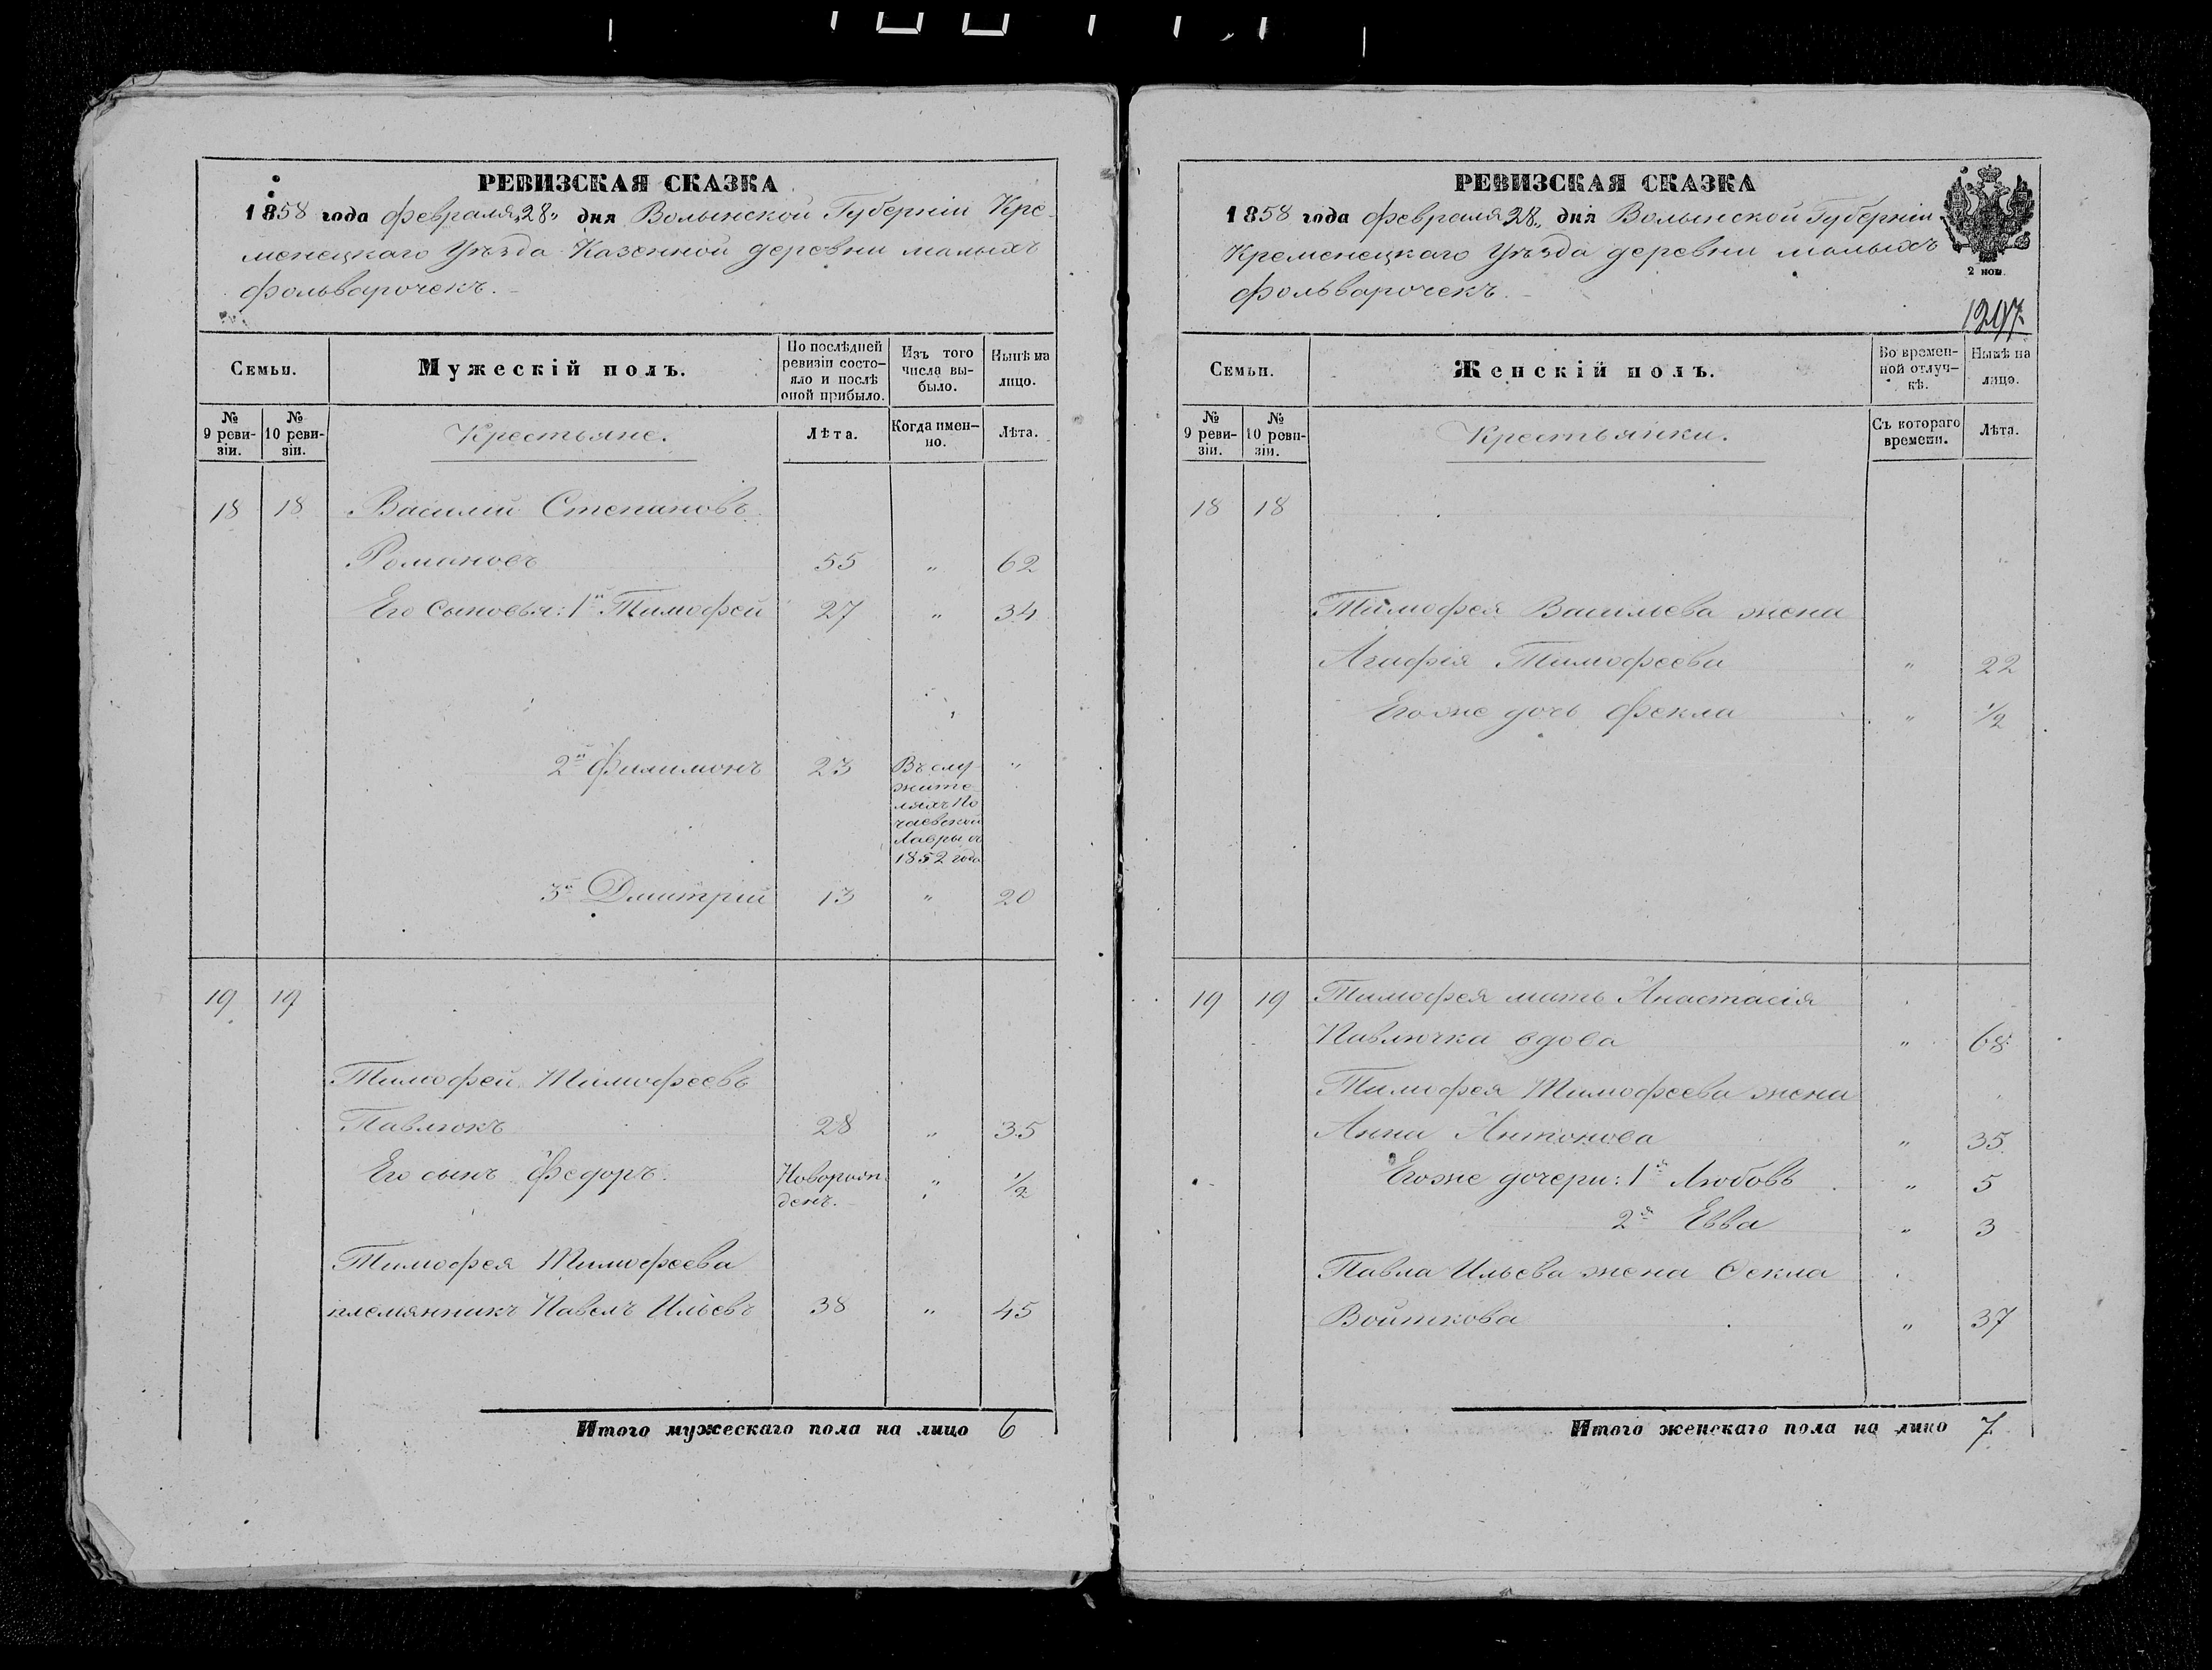 РЕВИЗСКАЯ СКАЗКА
1858 года февраля „28„ дня Волынской Губерніи Кре-
менецкаго Уѣзда Казенной деревни малыхъ
фольварочекъ.
Семьи.
Мужескій полъ.
По послѣдней ревизіи состо-
яло и послѣ оной прибыло.
Изъ того числа вы-
было.
Нынѣ на лицо.
№ 9 реви-
зіи.
№ 10 реви-
зіи.
Крестьяне.
Лѣта.
Когда имен-
но.
Лѣта.
18 18 Василій Степановъ
Романовъ 55 „ 62
Его сыновья: 1й Тимофей 27 „ 34
2й Филимонъ 23 Въ слу- „
жите-
ляхъ По
чаевской
Лавры съ
1852 года
3й Дмитрій 13 „ 20
19 19
Тимофей Тимофеевъ
Павлюкъ 28 „ 35
Его сынъ Федоръ. Новорож- „ 1/2
денъ.
Тимофея Тимофеева
племянникъ Павелъ Ильевъ 38 „ 45
Итого мужескаго пола на лицо 6
РЕВИЗСКАЯ СКАЗКА
1858 года февраля 28„ дня Волынской Губерніи
Кременецкаго Уѣзда деревни малыхъ
фольварочекъ.
2 коп.
1297
Семьи.
Женскій полъ.
Во времен-
ной отлуч-
кѣ.
Нынѣ на лицо.
№ 9 реви-
зіи.
№ 10 реви-
зіи.
Крестьянки.
Съ котораго времени.
Лѣта.
18 18
Тимофея Васильева жена
Агафія Тимофеева „ 22
Егоже дочь Фекла „ 1/2
19 19 Тимофея мать Анастасія
Павлючка вдова „ 68
Тимофея Тимофеева жена
Анна Антонова „ 35
Егоже дочери: 1я Любовь „ 5
2я Евва „ 3
Павла Ильева жена Ѳекла
Войткова „ 37
Итого женскаго пола на лицо 7